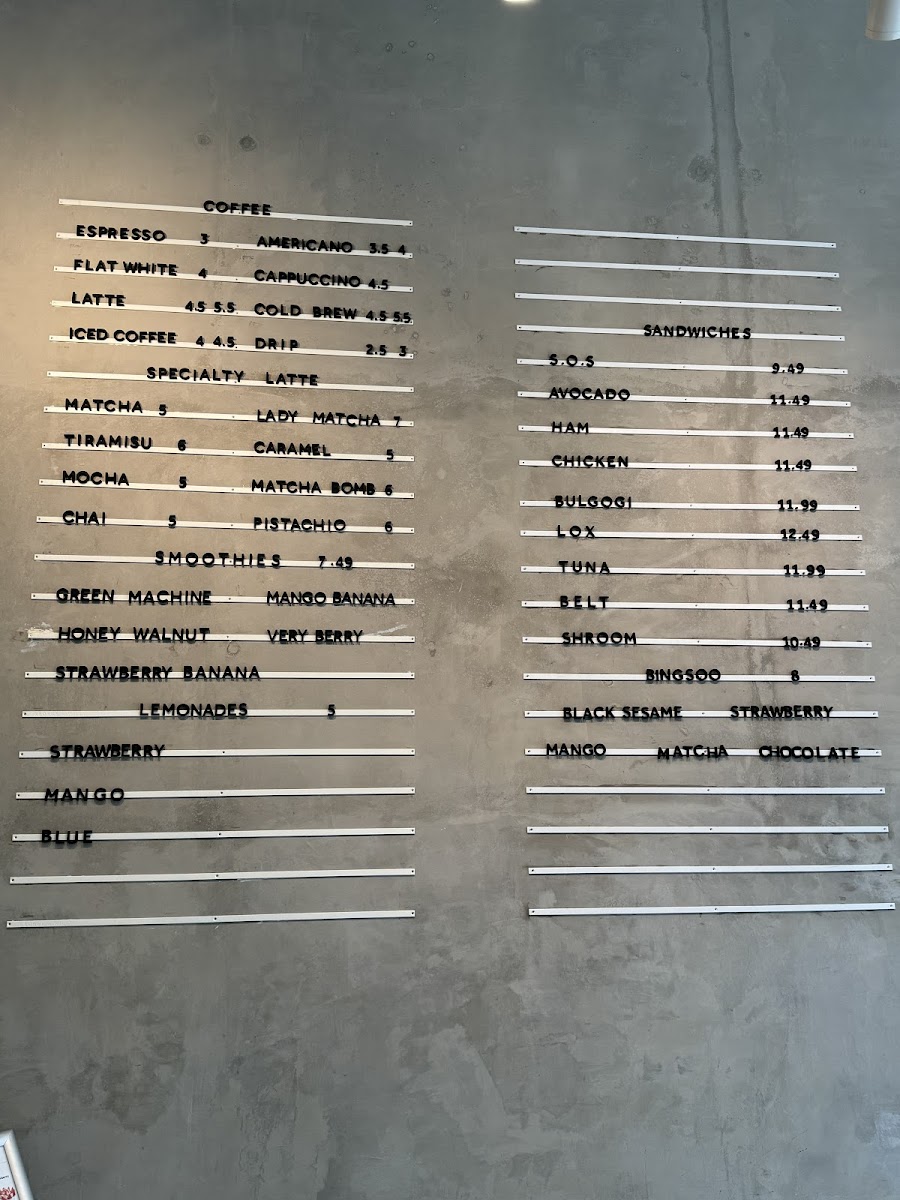 COFFEE
ESPRESSO 3 AMERICANO 3.5 4
FLAT WHITE 4 CAPPUCCINO 4.5
LATTE 4.5 5.5 COLD BREW 4.5 5.5
ICED COFFEE 4 4.5 DRIP 2.5 3
SPECIALTY LATTE
MATCHA 5 LADY MATCHA 7
TIRAMISU 6 CARAMEL 5
MOCHA 5 MATCHA BOMB 6
CHAI 5 PISTACHIO 6
SMOOTHIES 7.49
GREEN MACHINE MANGO BANANA
HONEY WALNUT VERY BERRY
STRAWBERRY BANANA
LEMONADES 5
STRAWBERRY
MANGO
BLUE
SANDWICHES
S.O.S 9.49
AVOCADO 11.49
HAM 11.49
CHICKEN 11.49
BULGOGI 11.99
LOX 12.49
TUNA 11.99
BELT 11.49
SHROOM 10.49
BINGSOO 8
BLACK SESAME STRAWBERRY
MANGO MATCHA CHOCOLATE